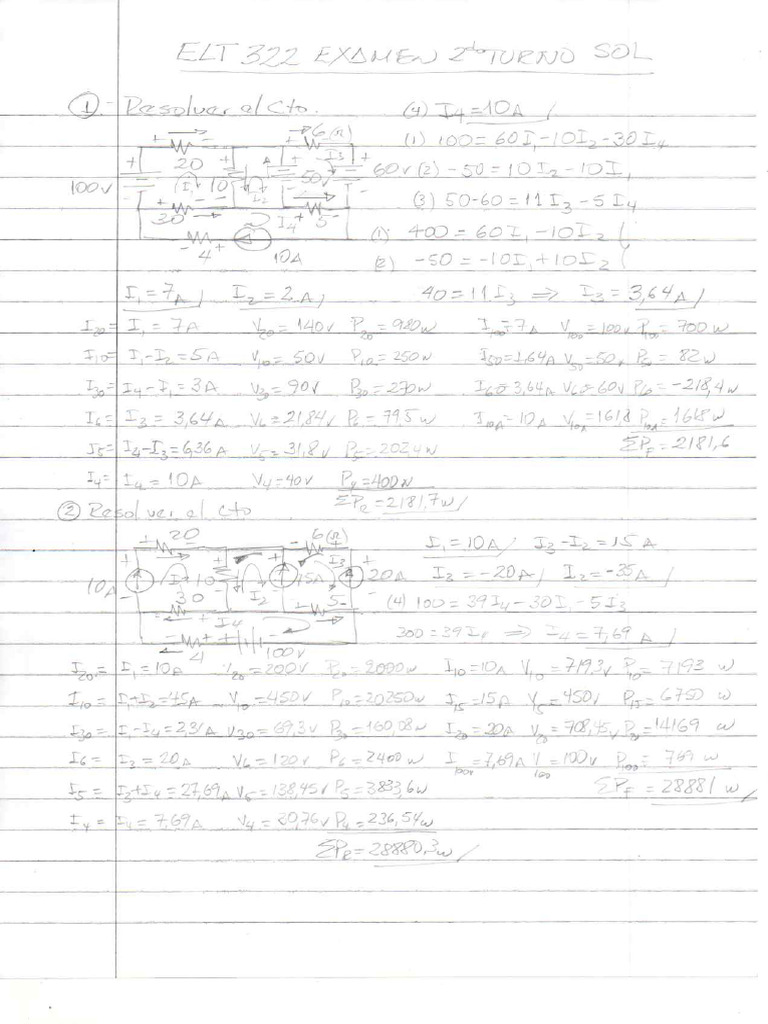 ELT 322 EXAMEN 2do TURNO SOL
① Resolver el Cto.
(4) I4=10A
(1) 100=60I1-10I2-30I4
(2) -50=10I2-10I1
(3) 50-60=11I3-5I4
(1) 400=60I1-10I2
(2) -50=-10I1+10I2
40=11I3 ⇒ I3=3,64A
+ 20 - 6(Ω) + -
100v I1 10 I2 50v I3 60v
30 I4 + 5 -
- 4 + 10A
I1=7A I2=2A
I20= I1=7A V20=140v P20=980w I100=7A V100=100v P100=700w
I10= I1-I2=5A V10=50v P10=250w I50=1,64A V50=50v P50=82w
I30= I4-I1=3A V30=90v P30=270w I60=3,64A V60=60v P60=-218,4w
I6= I3=3,64A V6=21,84v P6=79,5w I10A=10A V10A=161,8 P10A=1618w
I5= I4-I3=6,36A V5=31,8v P5=202,4w ΣPF=2181,6
I4= I4=10A V4=40v P4=400w
ΣPR=2181,7w
② Resolver el cto
+ 20 - 6(Ω)
10A I1 10 I2 15A I3 20A
30 I4 + 5 -
- 4 + 100v
I1=10A I3-I2=15A
I3=-20A I2=-35A
(4) 100=39I4-30I1-5I3
300=39I4 ⇒ I4=7,69A
I20= I1=10A V20=200v P20=2000w I10=10A V10=719,3v P10=7193 w
I10= I1+I2=45A V10=450v P10=20250w I15=15A V15=450v P15=6750 w
I30= I1-I4=2,31A V30=69,3v P30=160,08w I20=20A V20=708,45v P20=14169 w
I6= I3=20A V6=120v P6=2400w I100v=7,69A V100=100v P100=769 w
I5= I3+I4=27,69A V5=138,45v P5=3833,6w ΣPF=28881 w
I4= I4=7,69A V4=30,76v P4=236,54w
ΣPR=28880,3w